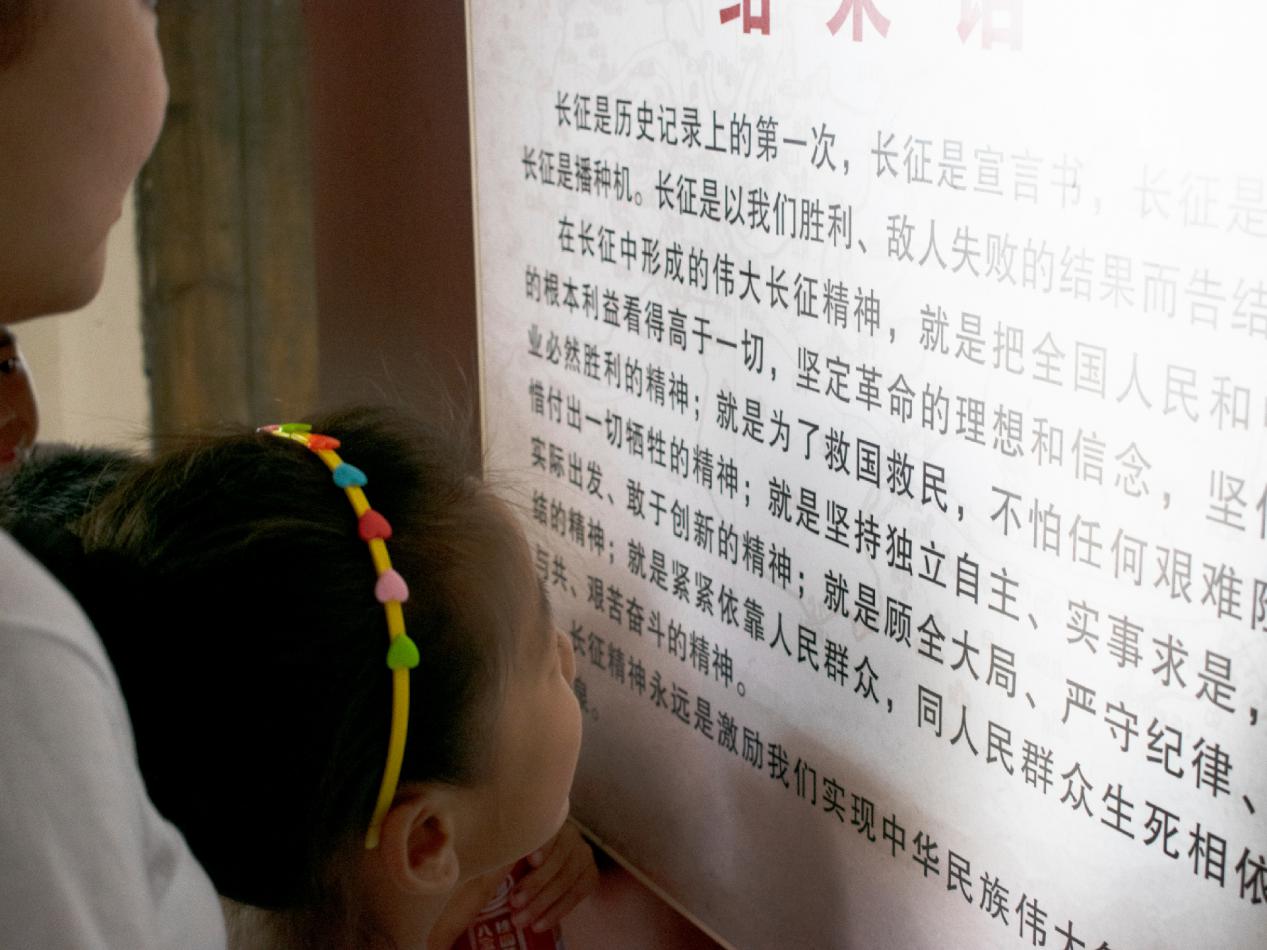 结束语
长征是历史记录上的第一次，长征是宣言书，长征是
长征是播种机。长征是以我们胜利、敌人失败的结果而告结
在长征中形成的伟大长征精神，就是把全国人民和
的根本利益看得高于一切，坚定革命的理想和信念，坚
业必然胜利的精神；就是为了救国救民，不怕任何艰难
惜付出一切牺牲的精神；就是坚持独立自主、实事求是，
实际出发、敢于创新的精神；就是顾全大局、严守纪律、
结的精神；就是紧紧依靠人民群众，同人民群众生死相依
与共、艰苦奋斗的精神。
长征精神永远是激励我们实现中华民族伟大
泉。